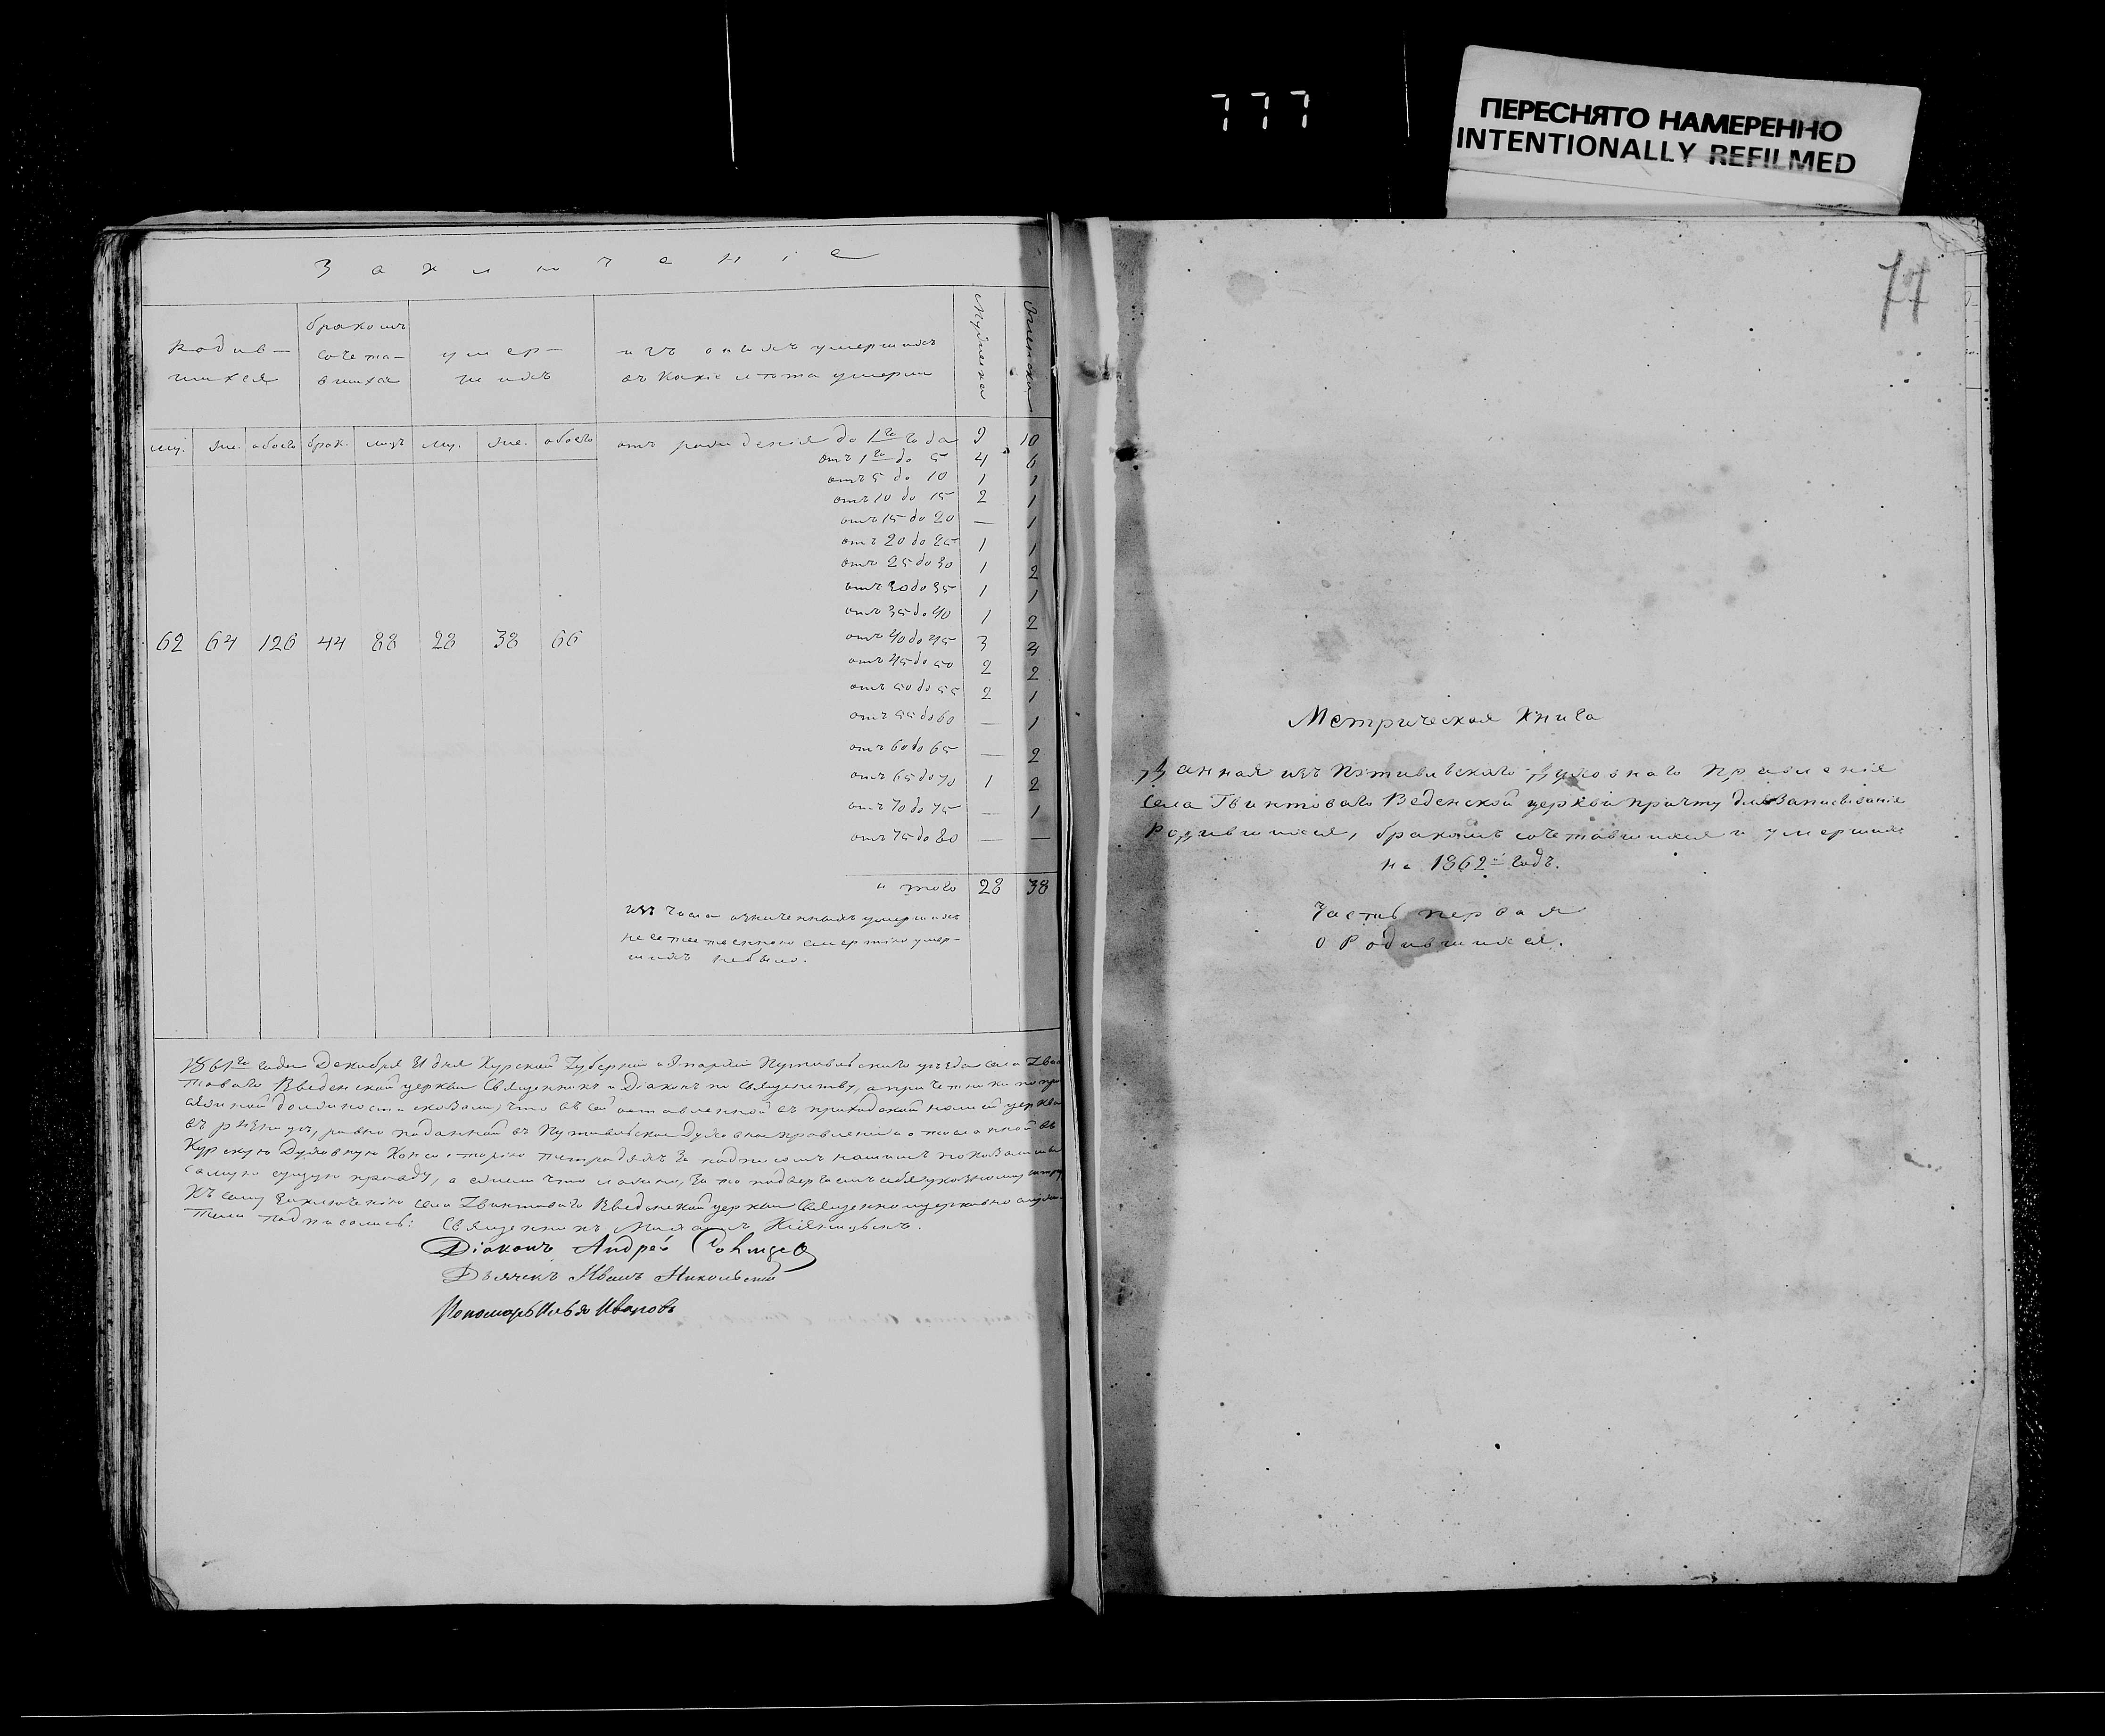 777
ПЕРЕСНЯТО НАМЕРЕННО
INTENTIONALLY REFILMED
Заключеніе
Родив-
шихся
бракомъ
сочета-
вшихся
умер-
шихъ
изъ оныхъ умершихъ
въ какіе лѣта умерли
Мужеска
Женска
му. же. обоего брак. лицъ му. же. обоего
отъ рожденія до 1го года 9 10
отъ 1го до 5 4 6
отъ 5 до 10 1 1
отъ 10 до 15 2 1
отъ 15 до 20 — 1
отъ 20 до 25 1 1
отъ 25 до 30 1 2
отъ 30 до 35 1 1
отъ 35 до 40 1 2
62 64 126 44 88 28 38 66
отъ 40 до 45 3 3
отъ 45 до 50 2 2
отъ 50 до 55 2 1
отъ 55 до 60 — 1
отъ 60 до 65 — 2
отъ 65 до 70 1 2
отъ 70 до 75 — 1
отъ 75 до 80 — —
итого 28 38
изъ числа означенныхъ умершихъ
неестественною смертію умер-
шихъ небыло.
1861го года Декабря 31 дня Курской Губерніи и Епархіи Путивльскаго уѣзда села
товаго Введенской церкви Священникъ и Діаконъ по священству, а причетники по
должности сказали, что въ сей оставленной въ приходской нашей церкви
въ ризницѣ, равно поданной въ Путивльское Духовное правленіе и отосланной въ
Курскую Духовную Консисторію тетрадяхъ за подписомъ нашимъ показали мы
самую сущую правду, а если что ложно, за то подвергаемъ себя указному
Къ сему заключенію села Гвинтоваго Введенской церкви Священноцерковнослужи-
тели подписались: Священникъ
Діаконъ Андрей
Дьячекъ Иванъ Никольскій
Пономарь Илья Ивановъ
77
Метрическая Книга
Данная изъ Путивльскаго Духовнаго Правленія
села Гвинтоваго Веденской церкви причту для записыванія
Родившихся, бракомъ сочетавшихся и умершихъ
на 1862й годъ.
Часть первая
о Родившихся.